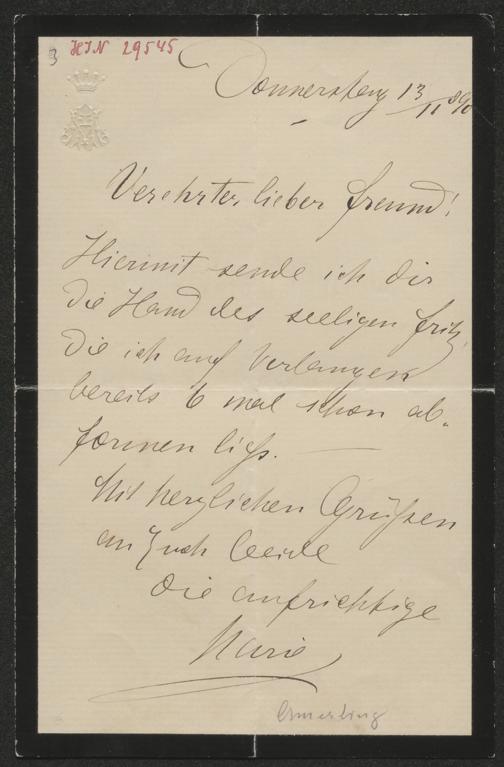 3 HIN 29545
Donnerstag 13/11 890
Verehrter lieber Freund!
Hiermit sende ich dir
die Hand des seeligen Fritz,
die ich auf Verlangen
bereits 6 mal schon ab-
formen ließ. —
Mit herzlichen Grüßen
an Euch beide
die aufrichtige
Marie
Amerling